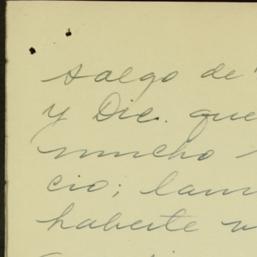 salgo de
y Dic. que
mucho
cio; lam
haberte